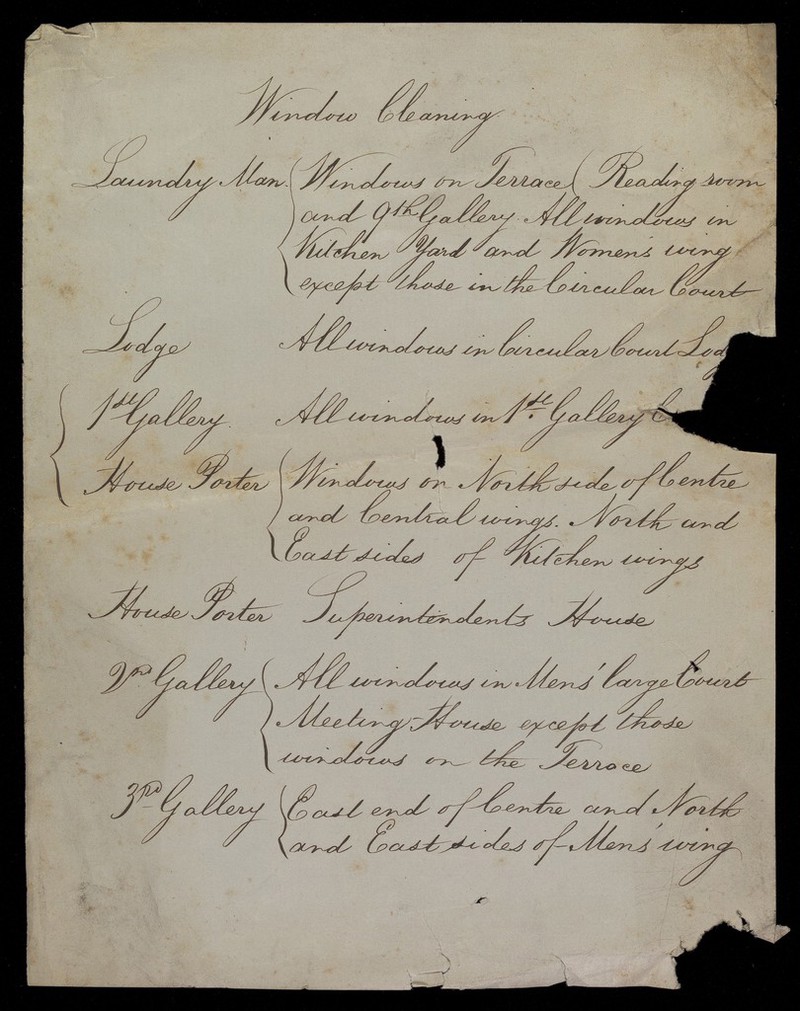 Window Cleaning
Laundry Man. Windows on Terrace ( Reading room
and 9th Gallery. All windows in
Kitchen Yard and Womens wing
except those in the Circular Court
Lodge All windows in Circular Court
1st Gallery. All windows in 1st Gallery
House Porter Windows on North side of Centre
and Central wings. North and
East sides of Kitchen wings
House Porter Superintendents House
2nd Gallery All windows in Mens' large Court
Meeting-House except those
windows on the Terrace
3rd Gallery East end of Centre and North
and East sides of Mens' wing